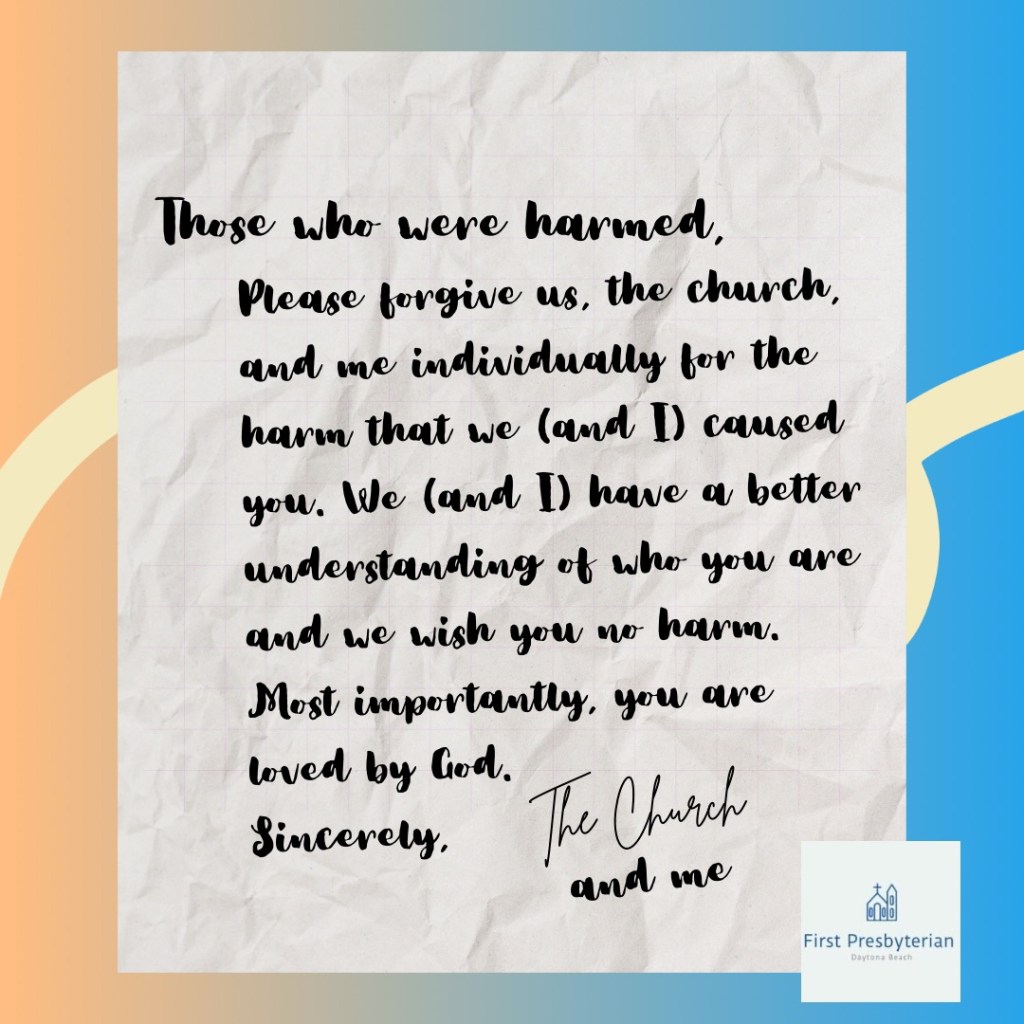 Those who were harmed,
Please forgive us, the church,
and me individually for the
harm that we (and I) caused
you. We (and I) have a better
understanding of who you are
and we wish you no harm.
Most importantly, you are
loved by God.
Sincerely,
The Church
and me
First Presbyterian
Daytona Beach